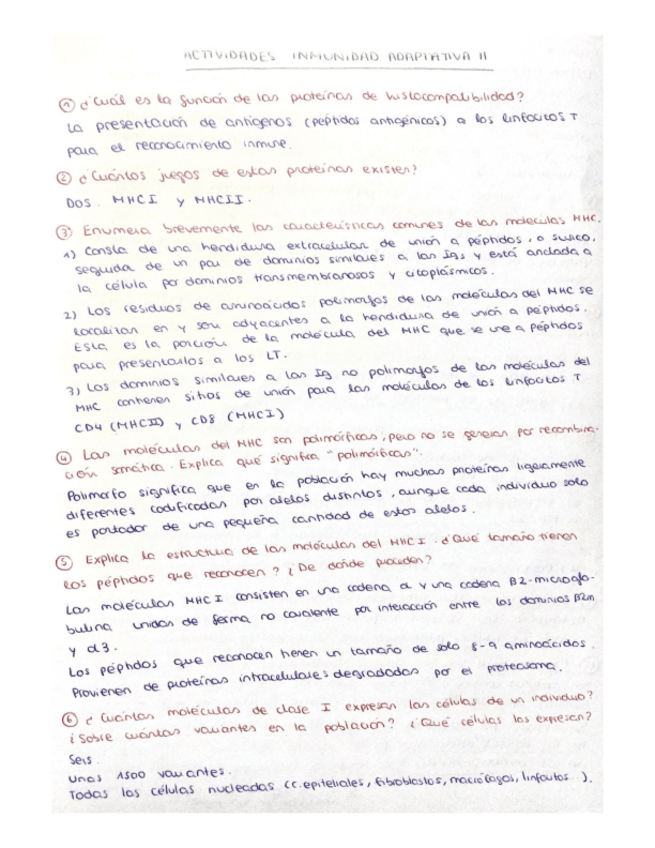 ACTIVIDADES INMUNIDAD ADAPTATIVA II
① ¿Cuál es la función de las proteínas de histocompatibilidad?
La presentación de antígenos (péptidos antigénicos) a los linfocitos T
para el reconocimiento inmune.
② ¿Cuántos juegos de estas proteínas existen?
DOS. MHCI y MHCII.
③ Enumera brevemente las características comunes de las moléculas MHC.
1) Consta de una hendidura extracelular de unión a péptidos, o surco,
seguida de un par de dominios similares a las Igs y está anclada a
la célula por dominios transmembranosos y citoplásmicos.
2) Los residuos de aminoácidos polimorfos de las moléculas del MHC se
localizan en y son adyacentes a la hendidura de unión a péptidos.
Esta, es la porción de la molécula del MHC que se une a péptidos
para presentarlos a los LT.
3) Los dominios similares a las Ig no polimorfos de las moléculas del
MHC contienen sitios de unión para las moléculas de los linfocitos T
CD4 (MHCII) y CD8 (MHCI)
④ Las moléculas del MHC son polimórficas, pero no se generan por recombina-
ción somática. Explica qué significa "polimórficas".
Polimorfo significa que en la población hay muchas proteínas ligeramente
diferentes codificadas por alelos distintos, aunque cada individuo solo
es portador de una pequeña cantidad de estos alelos.
⑤ Explica la estructura de las moléculas del MHC I. ¿Qué tamaño tienen
los péptidos que reconocen? ¿De dónde proceden?
Las moléculas MHC I consisten en una cadena α y una cadena β2-microglo-
bulina unidas de forma no covalente por interacción entre los dominios β2m
y α3.
Los péptidos que reconocen tienen un tamaño de solo 8-9 aminoácidos.
Provienen de proteínas intracelulares degradadas por el proteasoma.
⑥ ¿Cuántas moléculas de clase I expresan las células de un individuo?
¿Sobre cuántas variantes en la población? ¿Qué células las expresan?
Seis.
Unas 1500 variantes.
Todas las células nucleadas (c. epiteliales, fibroblastos, macrófagos, linfocitos...).